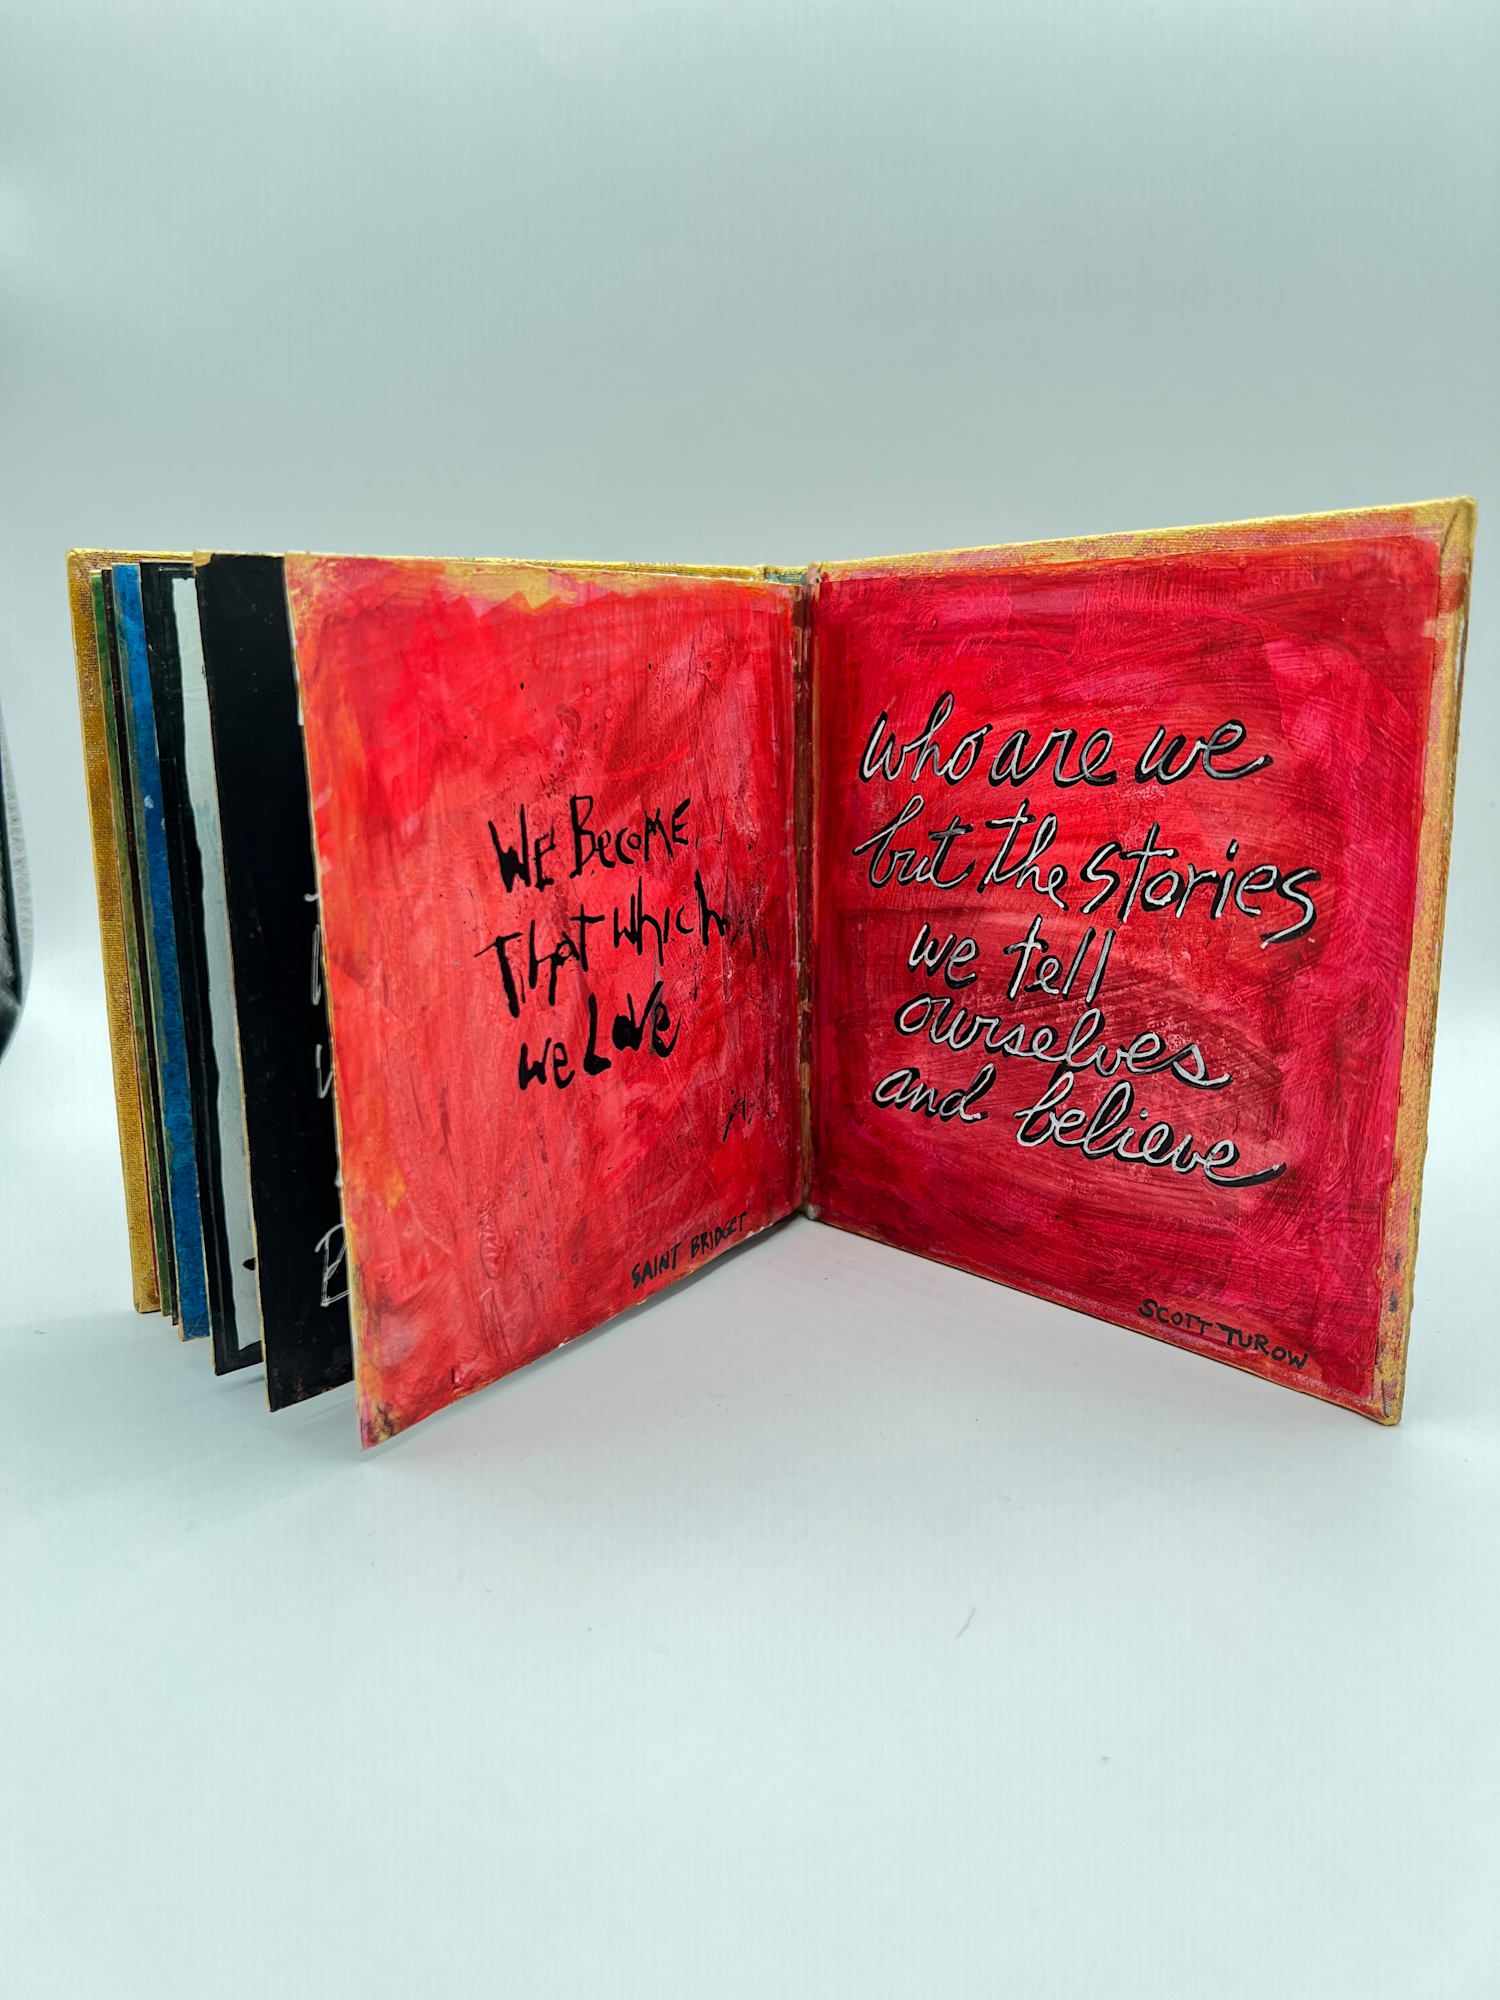 WE BECOME
THAT WHICH
WE LOVE
SAINT BRIDGET
who are we
but the stories
we tell
ourselves
and believe
SCOTT TUROW